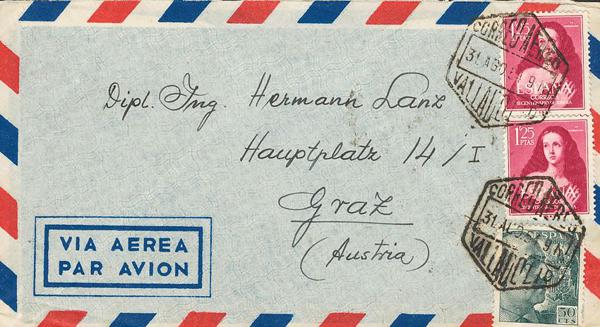 Dipl. Ing. Hermann Lanz
Hauptplatz 14/I
Graz
(Austria)
VIA AEREA
PAR AVION
CORREO AEREO
31 AGO
VALLADOLID
1'25
PTAS
ESPAÑA
CORREOS
1'25
PTAS
CORREO AEREO
VALLADOLID
ESPAÑA
50
CTS